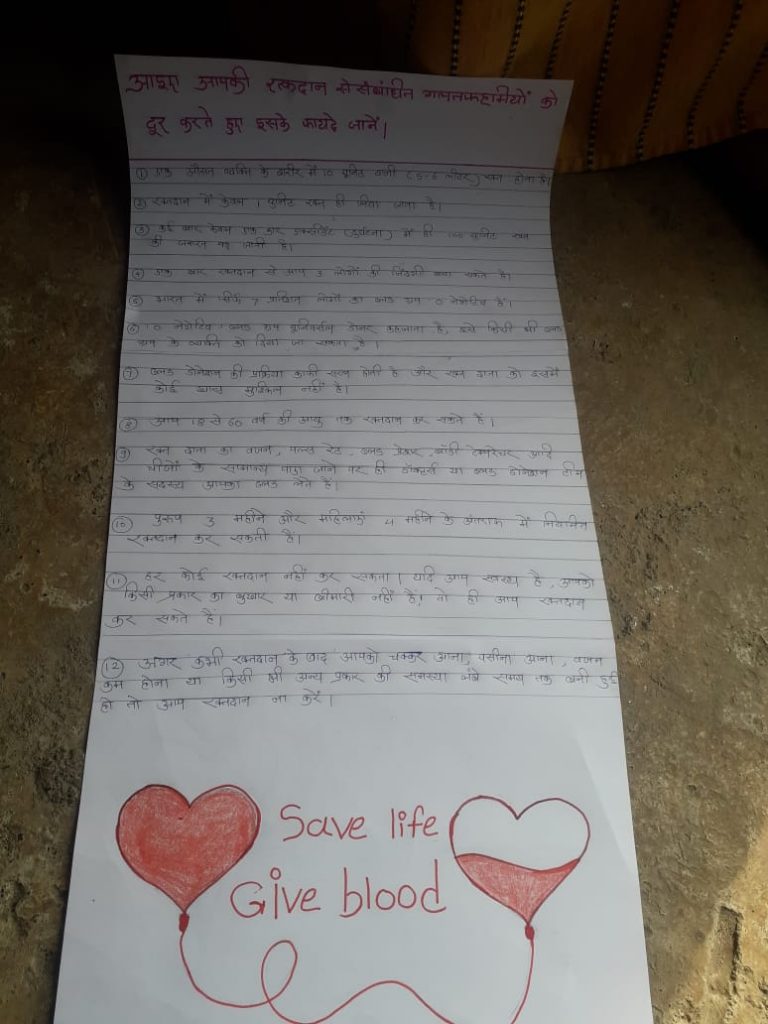 आइए आपकी रक्तदान से संबंधित गलतफहमियों को
दूर करते हुए इसके फायदे जानें।
① एक औसत व्यक्ति के शरीर में 10 यूनिट यानी (5-6 लीटर) रक्त होता है।
② रक्तदान में केवल 1 यूनिट रक्त ही लिया जाता है।
③ कई बार केवल एक कार एक्सीडेंट (दुर्घटना) में ही 100 यूनिट रक्त
की जरूरत पड़ जाती है।
④ एक बार रक्तदान से आप 3 लोगों की जिंदगी बचा सकते है।
⑤ भारत में सिर्फ 7 प्रतिशत लोगों का ब्लड ग्रुप 'O नेगेटिव' है।
⑥ 'O नेगेटिव' ब्लड ग्रुप यूनिवर्सल डोनर कहलाता है, इसे किसी भी ब्लड
ग्रुप के व्यक्ति को दिया जा सकता है।
⑦ ब्लड डोनेशन की प्रक्रिया काफी सरल होती है और रक्त दाता को इसमें
कोई मुश्किल नहीं है।
⑧ आप 18 से 60 वर्ष की आयु तक रक्तदान कर सकते हैं।
⑨ रक्त दाता का वजन, पल्स रेट, ब्लड प्रेशर, बॉडी टेम्परेचर आदि
चीजों के सामान्य पाए जाने पर ही डॉक्टर्स या ब्लड डोनेशन टीम
के सदस्य आपका ब्लड लेते हैं।
⑩ पुरुष 3 महीने और महिलाएं 4 महीने के अंतराल में नियमित
रक्तदान कर सकती हैं।
⑪ हर कोई रक्तदान नहीं कर सकता। यदि आप स्वस्थ है, आपको
किसी प्रकार का बुखार या बीमारी नहीं है, तो ही आप रक्तदान
कर सकते हैं।
⑫ अगर कभी रक्तदान के बाद आपको चक्कर आना, पसीना आना, वजन
कम होना या किसी भी अन्य प्रकार की समस्या लंबे समय तक बनी हुई
हो तो आप रक्तदान ना करें।
Save life
Give blood